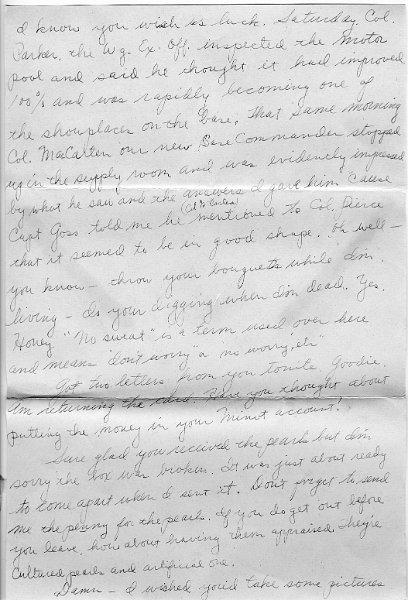 I know you wish us luck. Saturday, Col.
Parker, the Wg. Ex. Off. inspected the Motor
pool and said he thought it had improved
100% and was rapidly becoming one of
the showplaces on the base. That same morning
Col. MaCarten our new Base Commander stopped
up in the supply room and was evidently impressed
by what he saw and the answers I gave him 'cause
Capt Goss told me he mentioned to Col. Pierce
that it seemed to be in good shape. Oh well —
you know — throw your bouquets while I'm
living — do your digging when I'm dead. Yes,
Honey "No sweat" is a term used over here
and means "don't worry" or "no worry, etc"
Got two letters from you tonite. Goodie.
I'm returning the card. Have you thought about
putting the money in your Minot account?
Sure glad you received the pearls but I'm
sorry the box was broken. It was just about ready
to come apart when I sent it. Don't forget to send
me the penny for the pearls. If you do get out before
you leave, how about having them appraised. They're
Cultured pearls and artificial one.
Damn — I wished you'd take some pictures